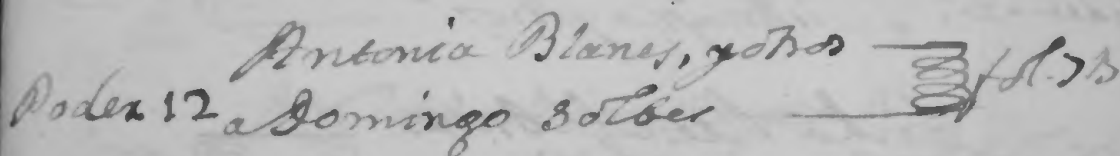 Antonia Blanes, y otros
Poder 12 a Domingo Solber fol. 7